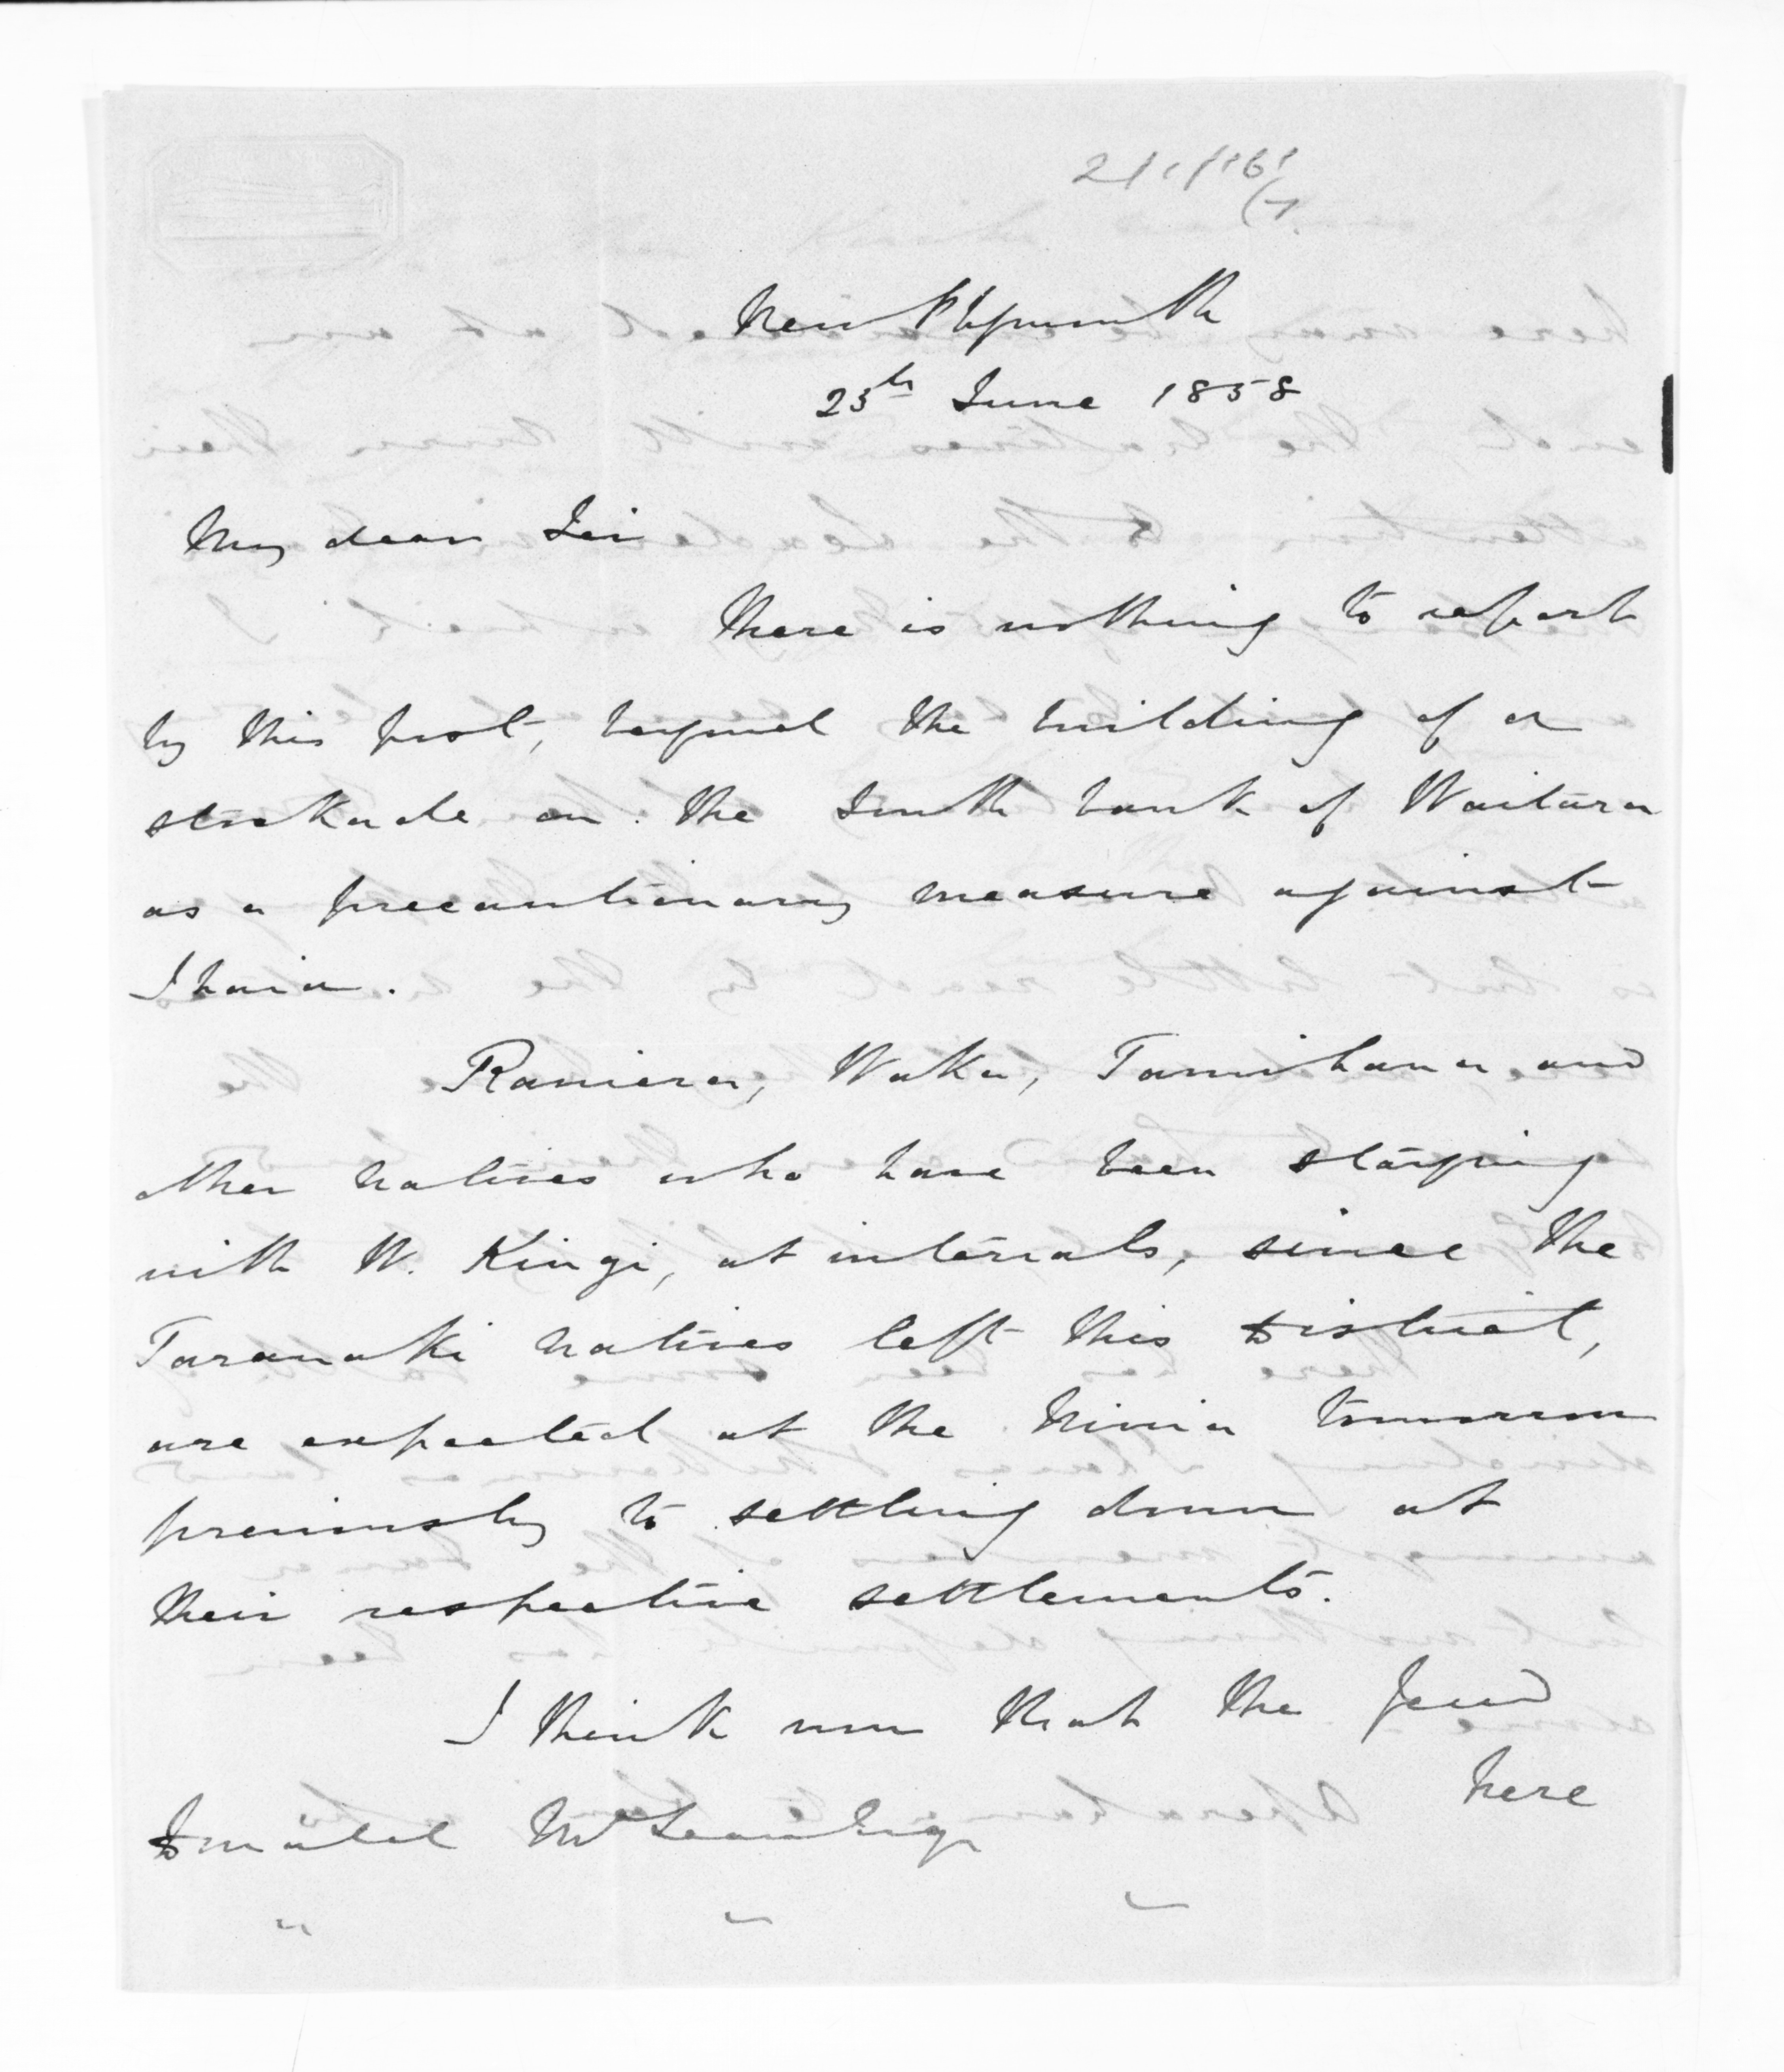 New Plymouth
25th June 1858
My dear Sir
There is nothing to report
by this post, beyond the building of a
stockade on the South bank of Waitara
as a precautionary measure against
Ihaia.
Raniera, Waka, Tamihana and
other natives who have been staying
with W. Kingi, at intervals, since the
Taranaki natives left this District,
are expected at the Ninia tomorrow
previously to settling down at
their respective settlements.
I think now that the feud
here
Donald McLean Esqr